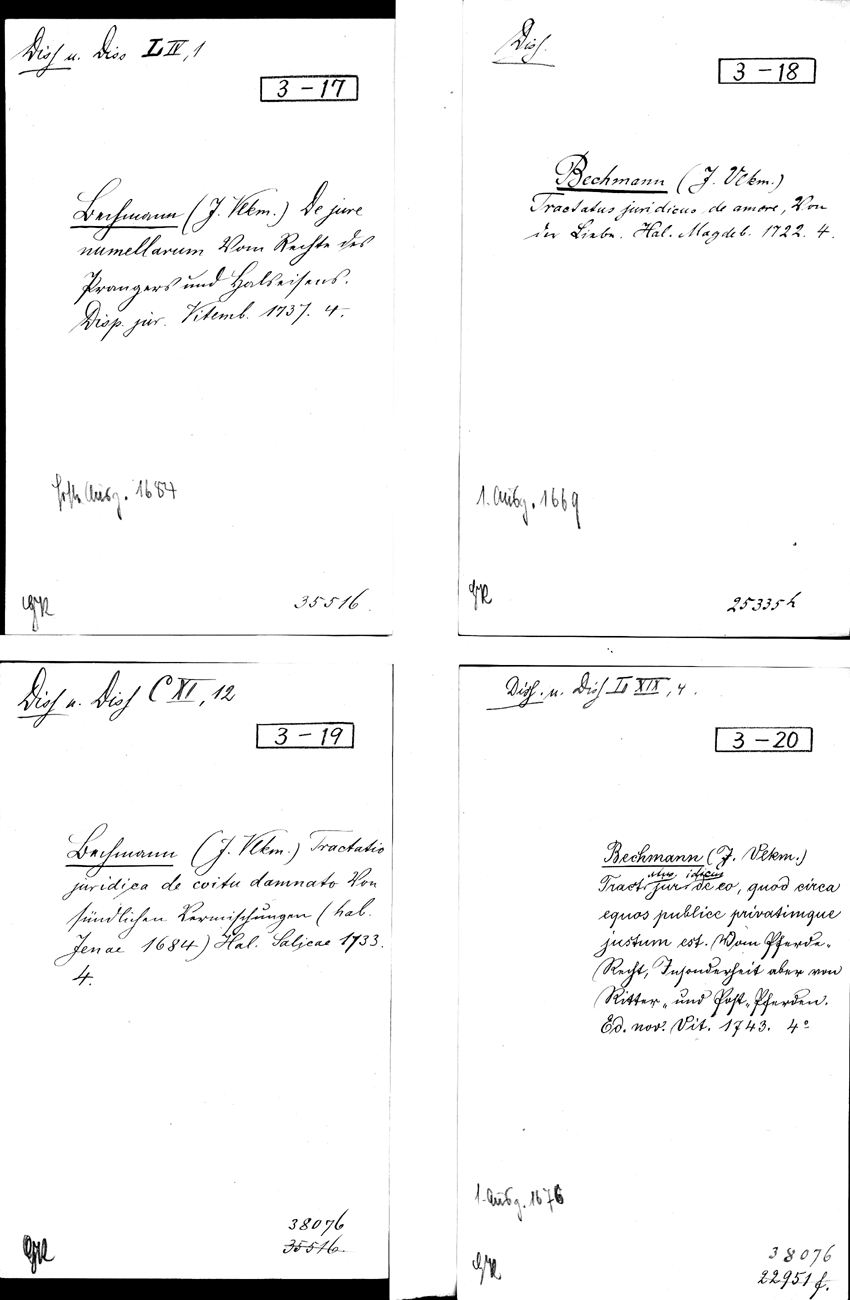 Diss u. Diss L IV, 1
3-17
Bechmann (J. Vlkm.) De jure
numellarum Vom Rechte des
Prangers und Halseisens.
Disp. jur. Vitemb. 1737. 4.
Ausg. 1684
35516.
Diss.
3-18
Bechmann (J. Vlkm.)
Tractatus juridicus de amore, Von
der Liebe. Hal. Magdeb. 1722. 4.
1. Ausg. 1669
25335h
Diss u. Diss C XI, 12
3-19
Bechmann (J. Vlkm.) Tractatio
juridica de coitu damnato Von
sündlichen Vermischungen (hab.
Jenae 1684) Hal. Salicae 1733.
4.
38076
35516.
Diss. u. Diss L XIX, 4.
3-20
Bechmann (J. Vlkm.)
Tract. jur. de eo, quod circa
equos publice privatimque
justum est. Vom Pferde-
Recht, Insonderheit aber von
Ritter- und Post-Pferden.
Ed. nov. Vit. 1743. 4º
1. Ausg. 1676
38076
22951 f.